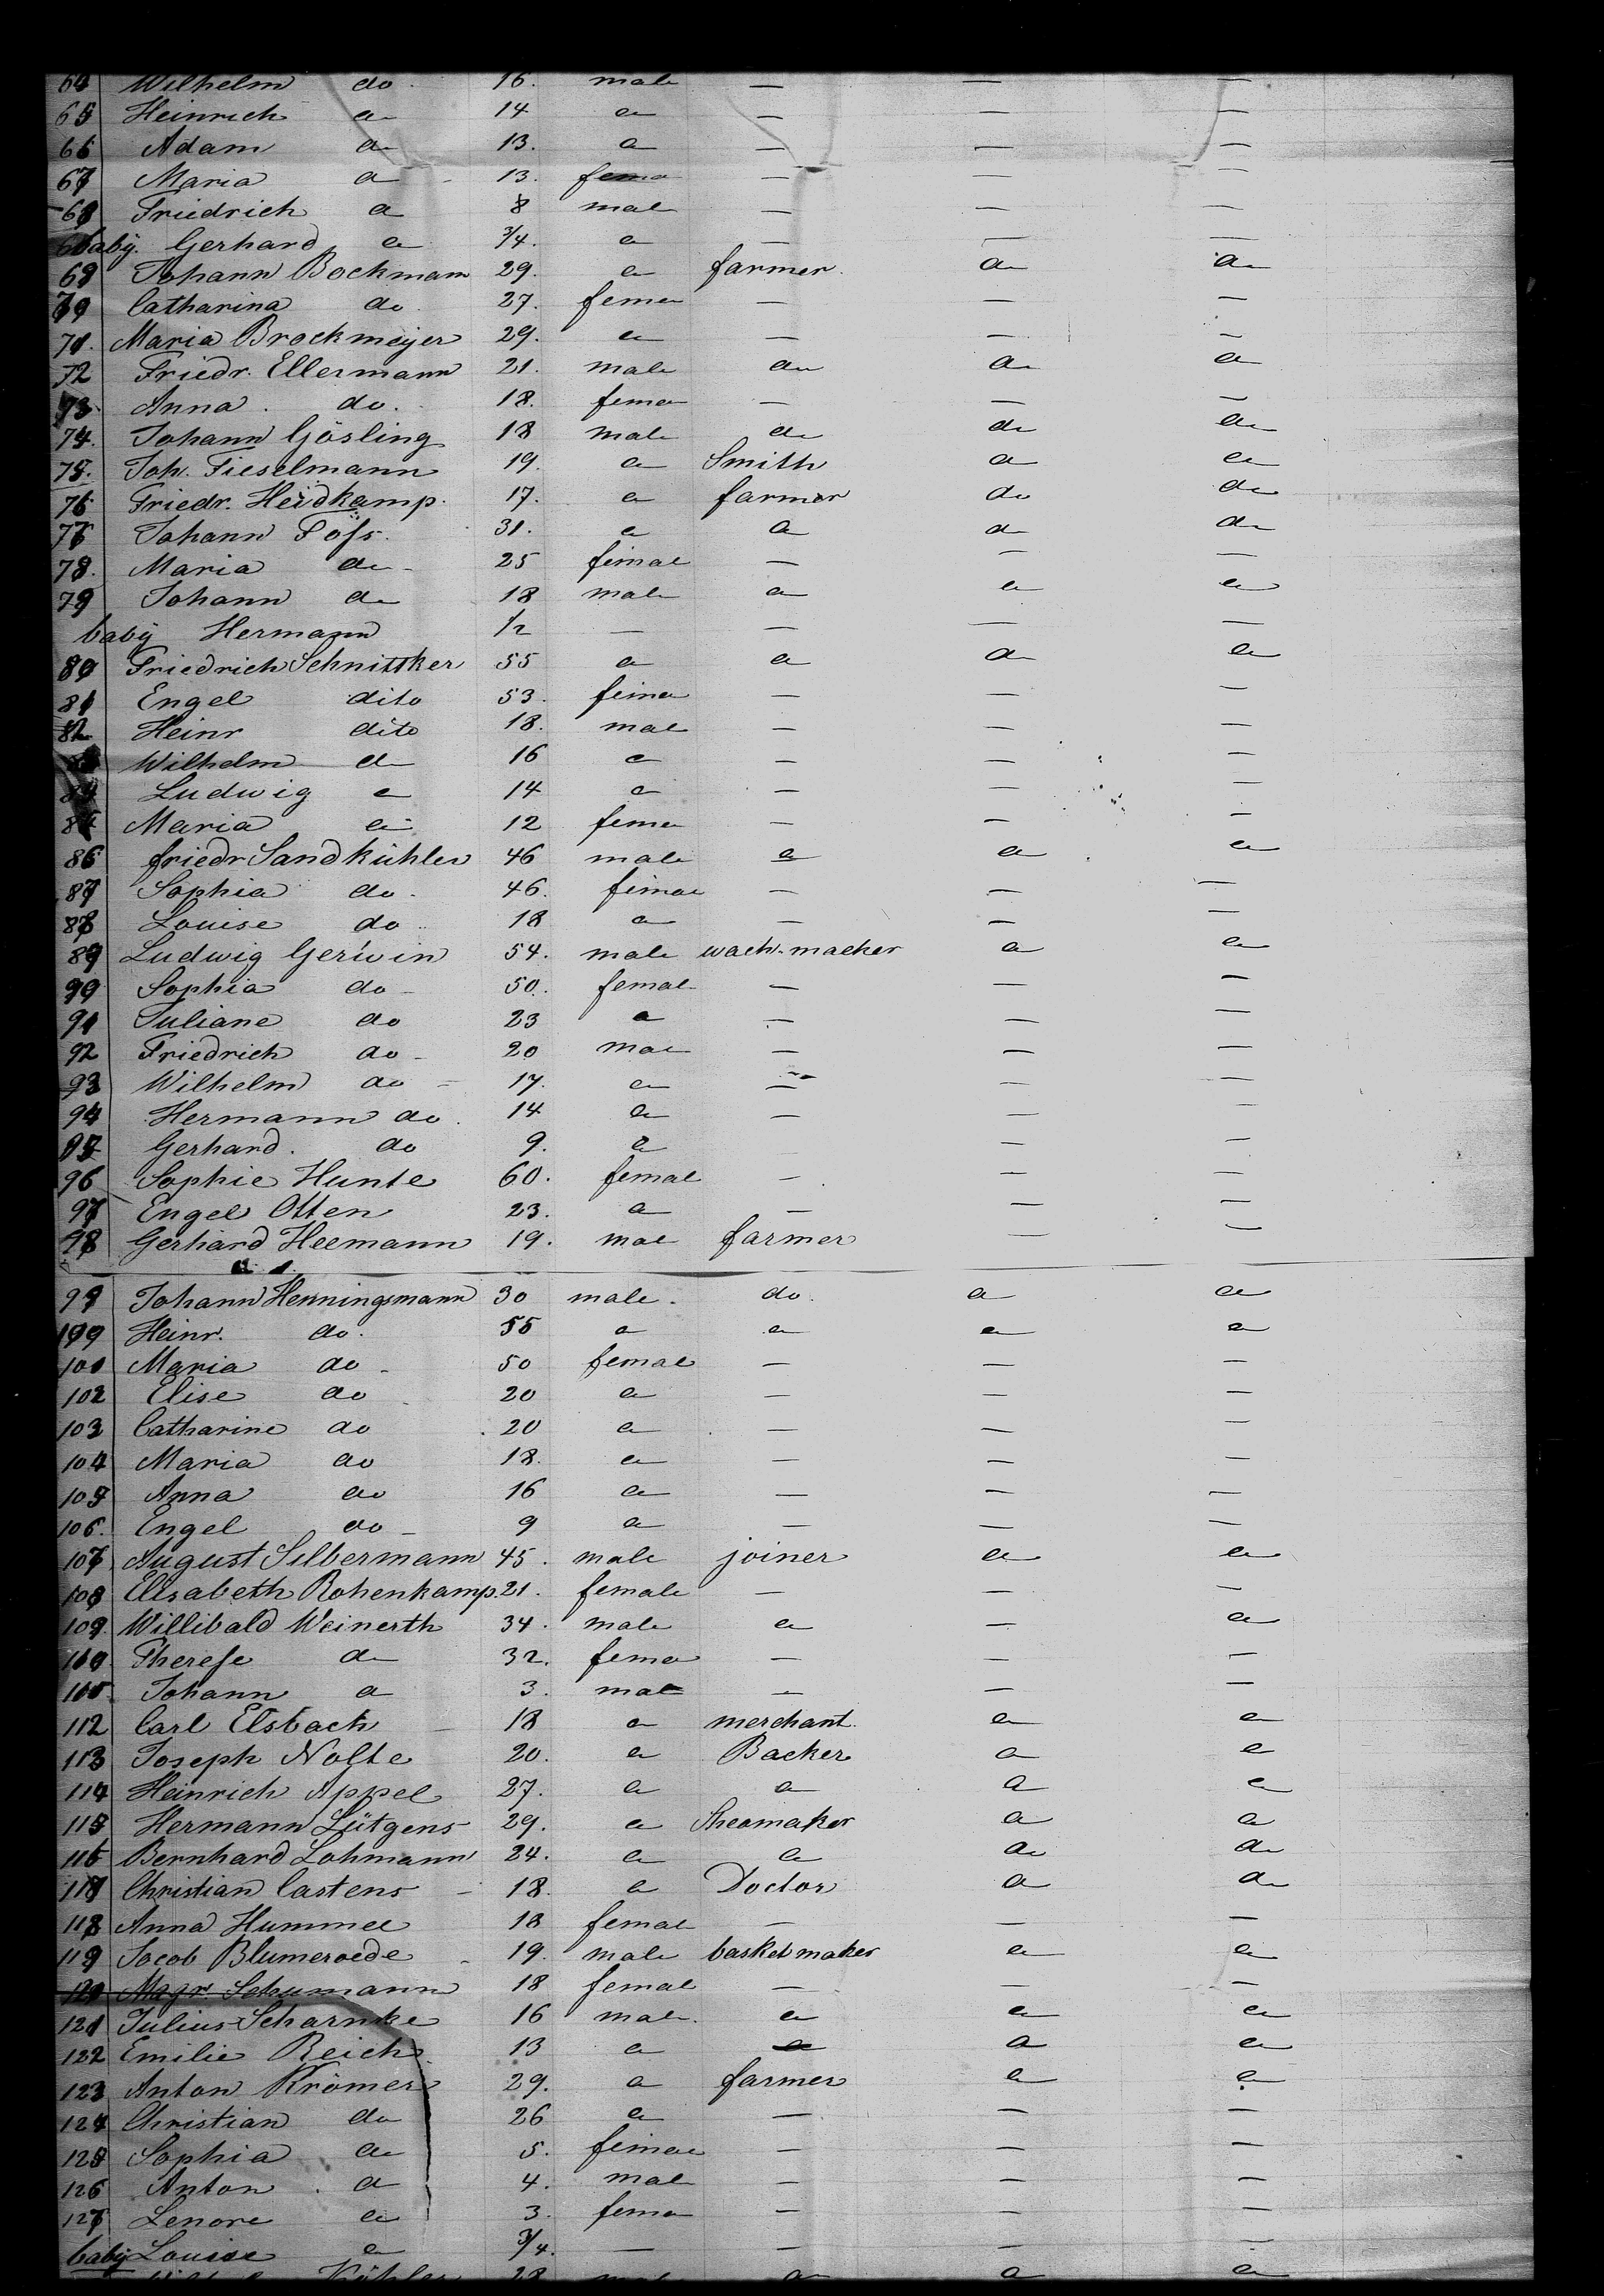 64 Wilhelm do 16. male — — —
65 Heinrich do 14 do — — —
66 Adam do 13. do — — —
67 Maria do 13. fema — — —
68 Friedrich do 8 male — — —
baby. Gerhard do 3/4. do — — —
69 Johann Bockmann 29. do farmer. do do
70 Catharina do 27. fema — — —
71. Maria Brockmeijer 29. do — — —
72 Friedr. Ellermann 21. male do do do
73 Anna do. 18. fema — — —
74. Johann Gösling 18 male do do do
75. Joh. Fieselmann 19. do Smith do do
76 Friedr. Heidkamp. 17. do farmer do do
77 Johann 31. do do do do
78. Maria do 25 femal — — —
79 Johann do 18 male do do do
baby Hermann 1/2 — — — —
80 Friedrich Schnittker 55 do do do do
81 Engel dito 53. fema — — —
82 Heinr dito 18. mal — — —
83 Wilhelm do 16 do — — —
84 Ludwig do 14 do — — —
85 Maria do 12 fema — — —
86 friedr Sandkühler 46 male do do do
87 Sophia do 46. femal — — —
88 Louise do 18 do — — —
89 Ludwig Gerwin 54. male wach-macker do do
90 Sophia do 50. femal — — —
91 Juliane do 23 do — — —
92 Friedrich do 20 mal — — —
93 Wilhelm do 17. do — — —
94 Hermann do. 14 do — — —
95 Gerhard. do 9. do — —
96 Sophie Hunte 60. femal — — —
97 Engel Otten 23. do — — —
98 Gerhard Heemann 19. mal farmer — —
99 Johann Henningsmann 30 male. do. do do
100 Heinr. do. 55 do do do do
101 Maria do 50 femal — — —
102 Elise do 20 do — — —
103 Catharine do 20 do — — —
104 Maria do 18. do — — —
105 Anna do 16 do — — —
106. Engel do 9 do — — —
107 August Silbermann 45. male joiner do do
108 Elisabeth Rohenkamp. 21. female — — —
109. Willibald Weinerth 34. male do — do
110 Therese do 32. fema — — —
Johann do 3. mal — — —
112 Carl Elsbach 18 do merchant. do do
113 Joseph Nolte 20. do Backer do do
114 Heinrich Appel 27. do do do do
115 Hermann Lütgens 29. do Sheomaker do do
116 Bernhard Lohmann 24. do do do do
117 Christian Castens 18. do Doctor do do
118 Anna Hummel 18 femal — — —
119 Jacob Blumeroede 19. male basketmaker do do
120 Magr. Schumann 18 femal — — —
121 Julius Scharnke 16 male. do do do
122 Emilie Reich 13 do do do do
123 Anton Krömer 29. do farmer do do
124 Christian do 26 do — — —
125 Sophia do 5. femal — — —
126 Anton do 4. mal — — —
127 Lenore do 3. fema — — —
baby Louise do 3/4. — — — —
Köhler 28 male do do do